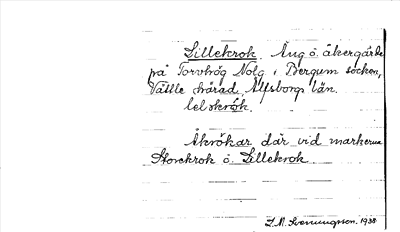 Lillekrok. Äng o. åkergärde
på Torvhög Nolg. i Bergum socken,
Vättle härad, Älfsborgs län.
lelskrók.
Åkrökar där vid markerna
Storekrok o. Lillekrok.
S.M. Svenungsson. 1938